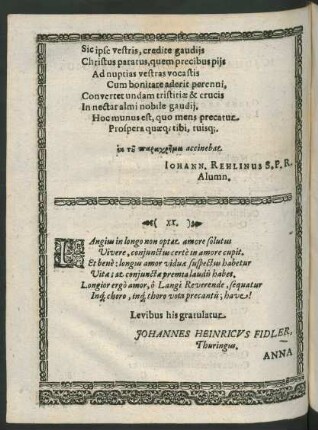 Sic ipse vestris, credite gaudijs
Christus paratus, quem precibus pijs
Ad nuptias vestras vocastis
Cum bonitate aderit perenni,
Convertet undam tristitiæ & crucis
In nectar almi nobile gaudij.
Hoc munus est, quo mens precatur
Prospera quæq; tibi, tuisq;.
ἐκ τῦ παραχρῆμα accinebat.
IOHANN. REHLINUS S.P.R.
Alumn.
( XX. )
LAngius in longo non optat amore solutus
Vivere, conjunctus certè in amore cupit.
Et benè: longus amor viduæ suspectus habetur
Vita: at conjuncta præmta laudis habet.
Longior ergò amor, ô Langi Reverende, sequatur
Inq; choro, inq; thoro vota precantû; have!
Levibus his gratulatur
JOHANNES HEINRICVS FIDLER,
Thuringus,
ANNA